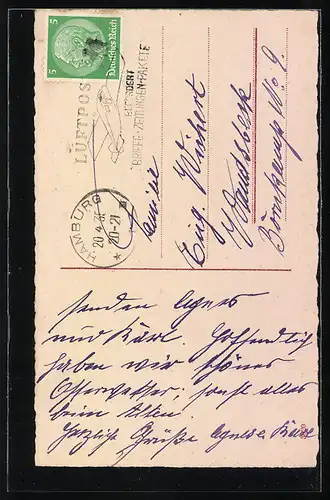 5 Deutsches Reich 5
LUFTPOST
BEFÖRDERT
BRIEFE-ZEITUNGEN-PAKETE
HAMBURG
20.4.35
20-21
Familie
Eug. Wichert
Wandsbeck
senden Agnes
und Karl. Hoffentlich
haben wir schönes
Osterwetter, sonst alles
beim Alten.
Herzliche Grüße Agnes u. Karl